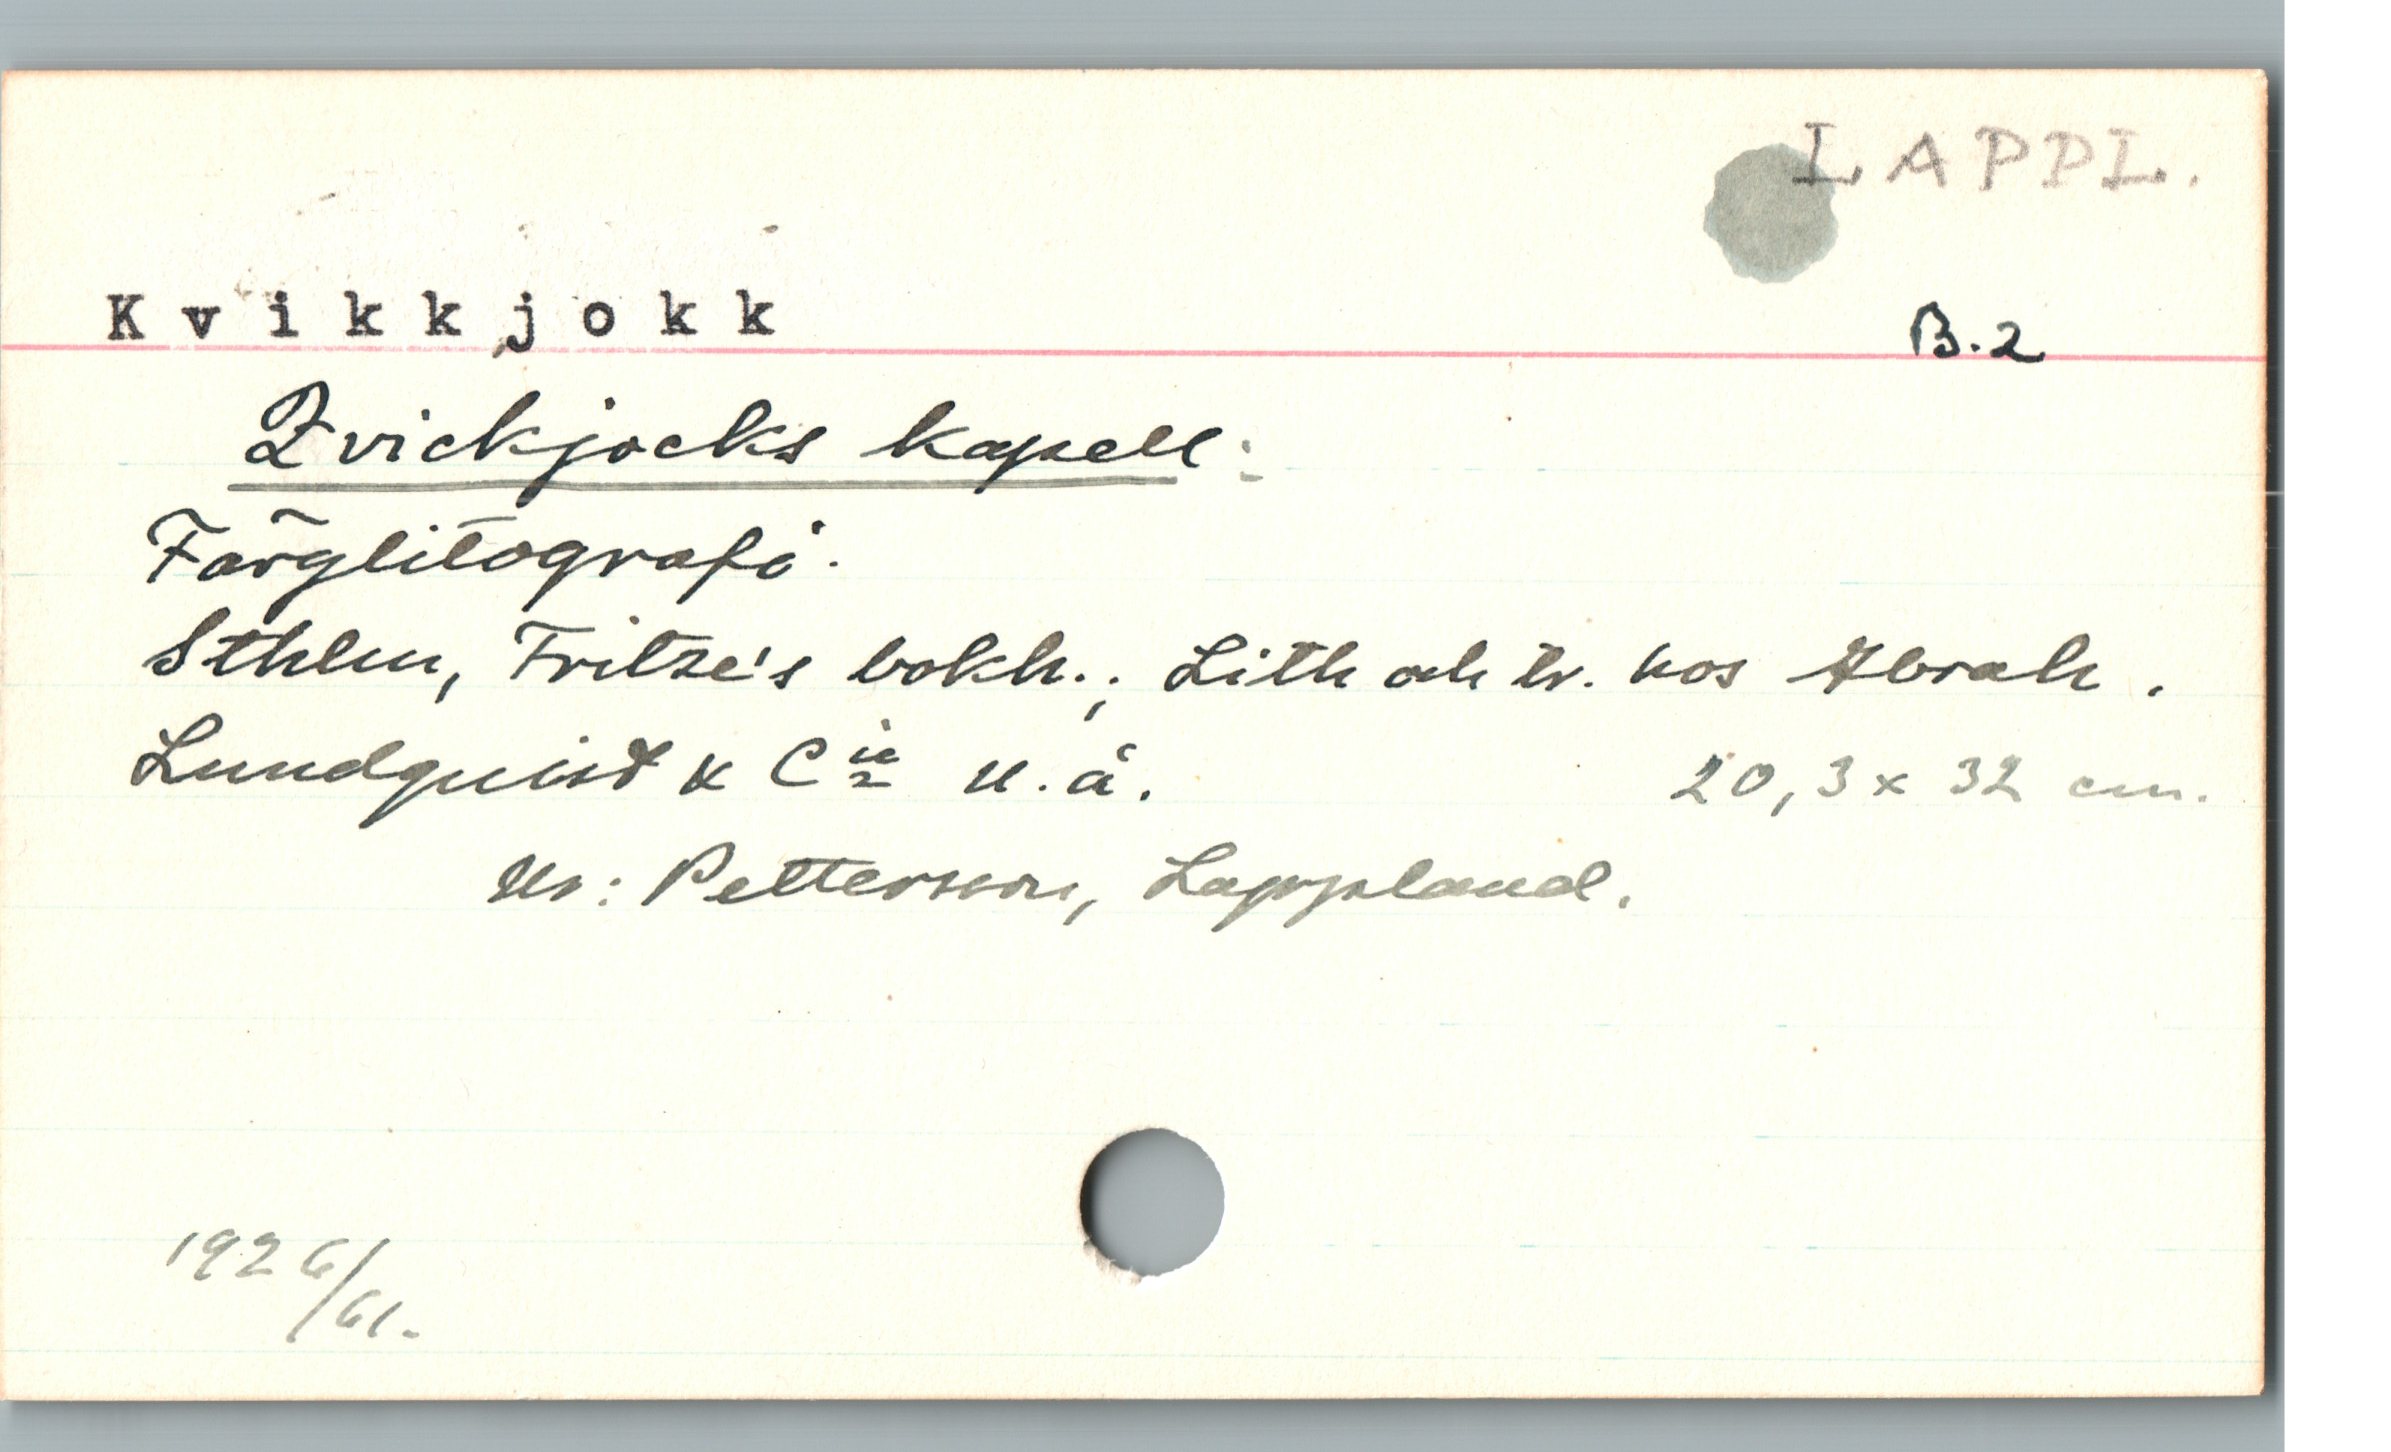 LAPPL.
Kvikkjokk
B.2
Qvickjocks kapell.
Färglitografi.
Sthlm, Fritze's bokh.; Lith och tr. hos Abrah.
Lundquist & Cie u.å. 20,3 x 32 cm.
Ur: Petterson, Lappland.
1926/61.